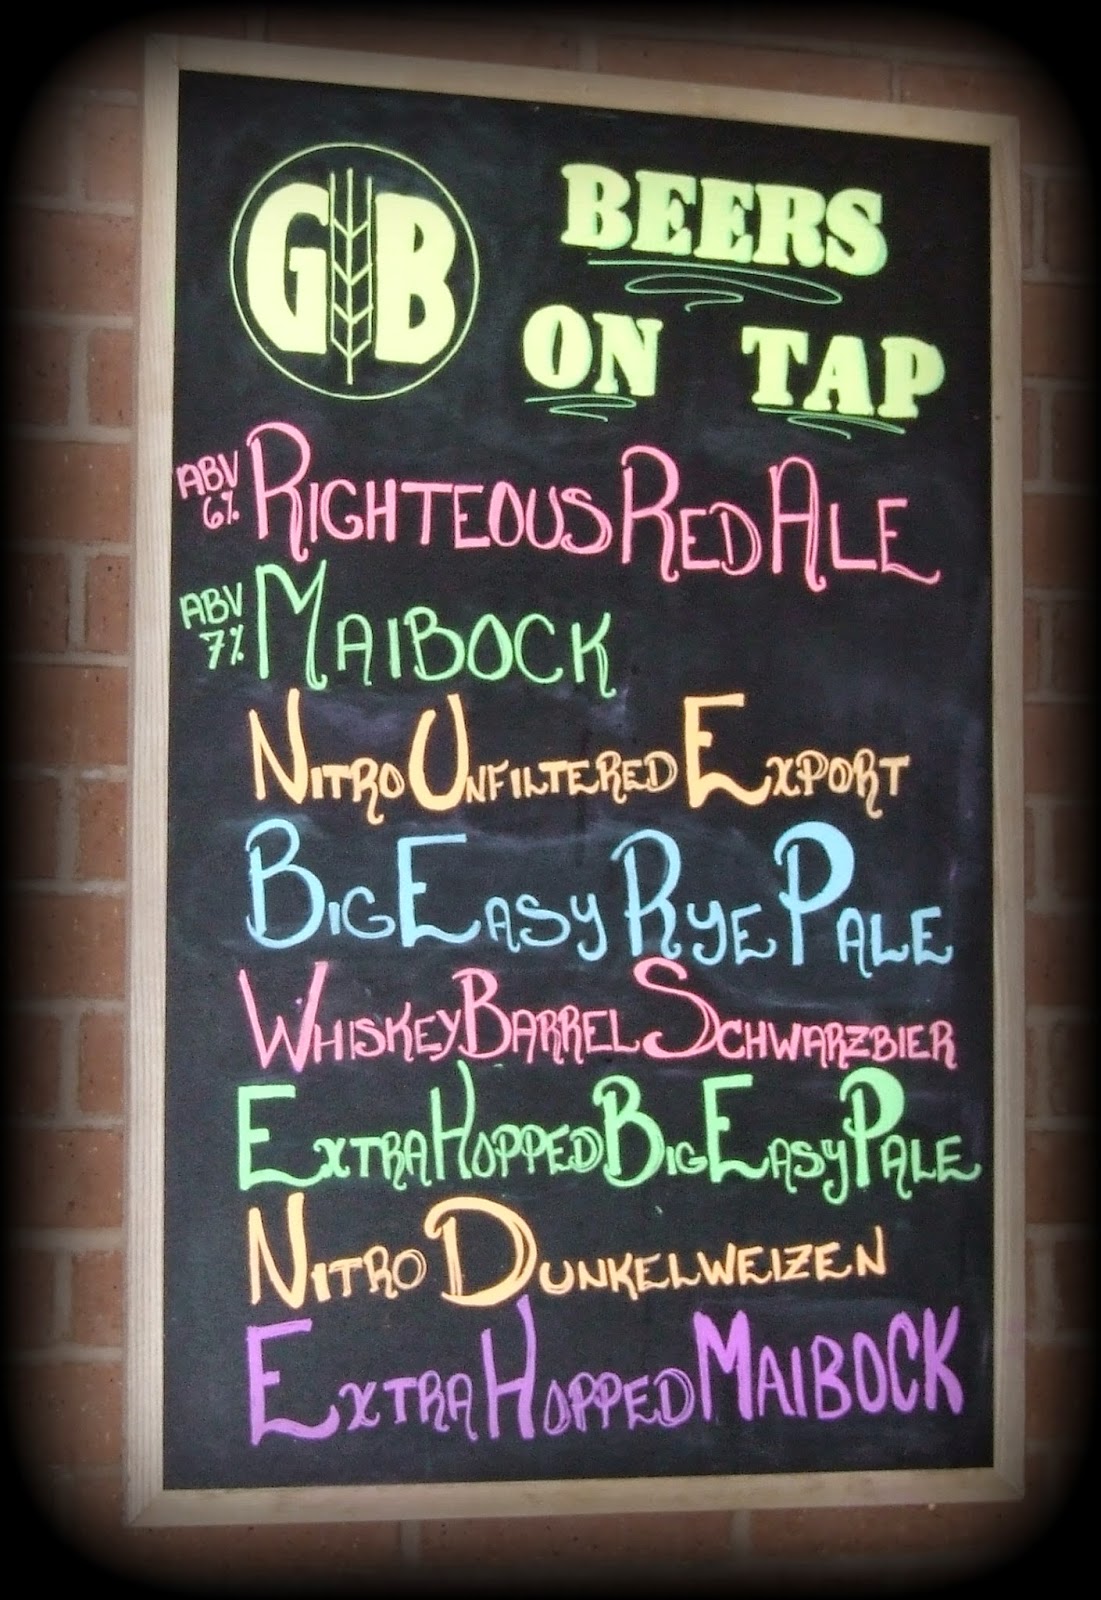 GB
BEERS
ON TAP
ABV 6% RIGHTEOUS RED ALE
ABV 7% MAIBOCK
NITRO UNFILTERED EXPORT
BIG EASY RYE PALE
WHISKEY BARREL SCHWARZBIER
EXTRA HOPPED BIG EASY PALE
NITRO DUNKELWEIZEN
EXTRA HOPPED MAIBOCK